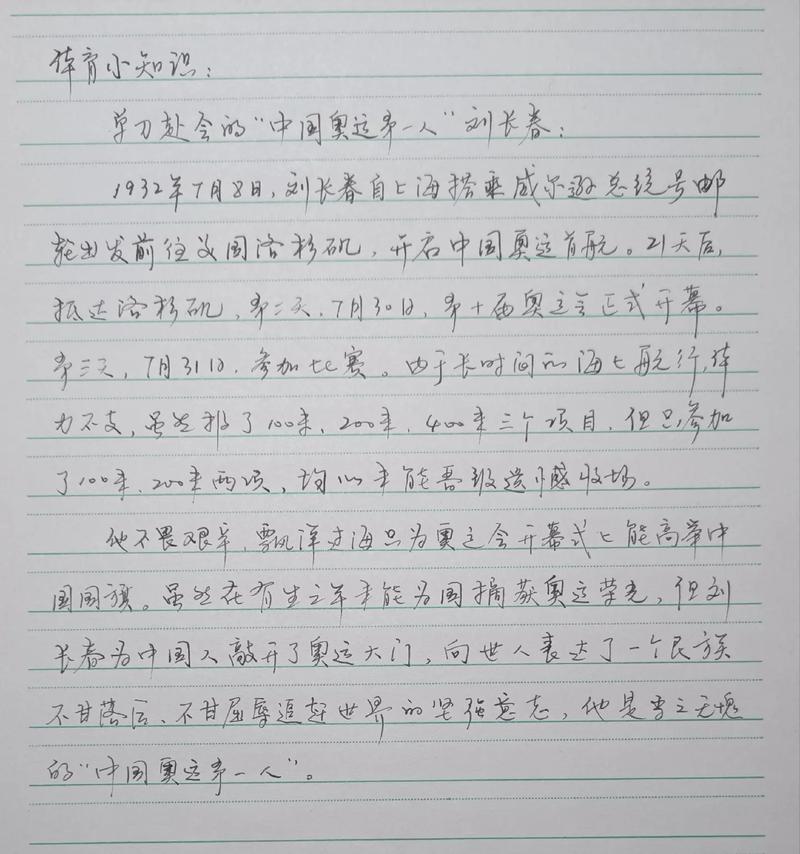 体育小知识:
单刀赴会的“中国奥运第一人”刘长春:
1932年7月8日,刘长春自上海搭乘威尔逊总统号邮
轮出发前往美国洛杉矶,开启中国奥运首航。21天后,
抵达洛杉矶,第二天,7月30日,第十届奥运会正式开幕。
第三天,7月31日,参加比赛。由于长时间的海上航行,体
力不支,虽然报了100米,200米,400米三个项目,但只参加
了100米、200米两项,均以未能晋级遗憾收场。
他不畏艰辛,飘洋过海只为奥运会开幕式上能高举中
国国旗。虽然在有生之年未能为国摘获奥运荣光,但刘
长春为中国人敲开了奥运大门,向世人表达了一个民族
不甘落后、不甘屈辱追赶世界的坚强意志,他是当之无愧
的“中国奥运第一人”。